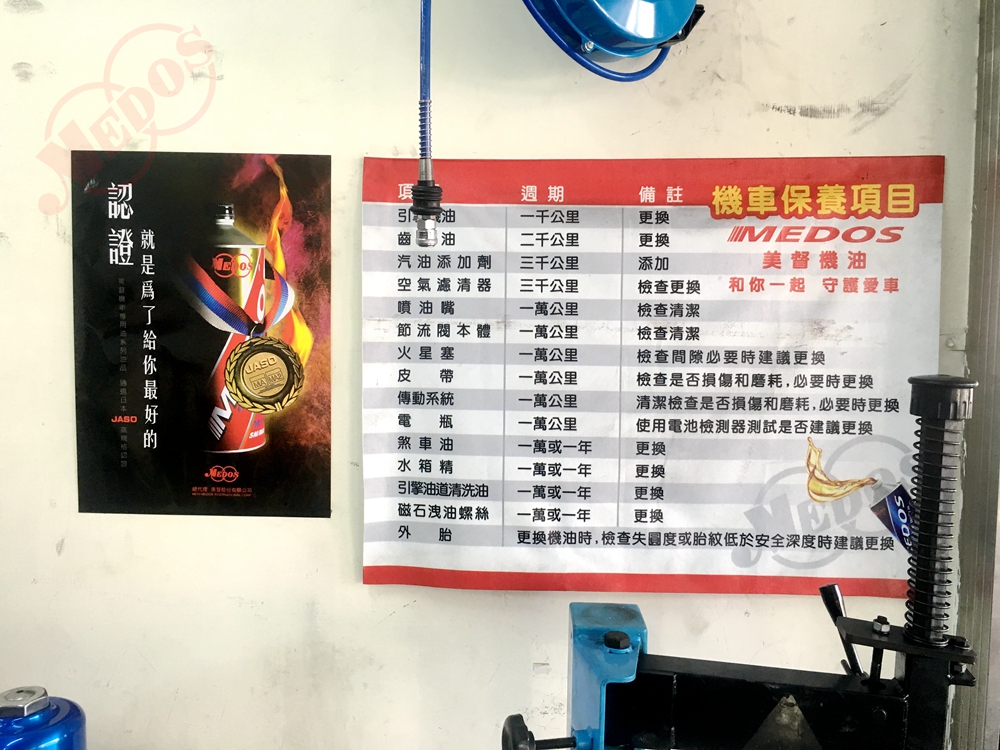 MEDOS
認證
就是爲了給你最好的
JASO
MEDOS
JASO
MA MA2
MEDOS
項
週期
備註
機車保養項目
引 油
一千公里
更換
MEDOS
齒 油
二千公里
更換
美督機油
汽油添加劑
三千公里
添加
和你一起 守護愛車
空氣濾清器
三千公里
檢查更換
噴油嘴
一萬公里
檢查清潔
節流閥本體
一萬公里
檢查清潔
火星塞
一萬公里
檢查間隙必要時建議更換
皮 帶
一萬公里
檢查是否損傷和磨耗,必要時更換
傳動系統
一萬公里
清潔檢查是否損傷和磨耗,必要時更換
電 瓶
一萬公里
使用電池檢測器測試是否建議更換
煞車油
一萬或一年
更換
水箱精
一萬或一年
更換
引擎油道清洗油
一萬或一年
更換
磁石洩油螺絲
一萬或一年
更換
外 胎
更換機油時,檢查失圓度或胎紋低於安全深度時建議更換
MEDOS